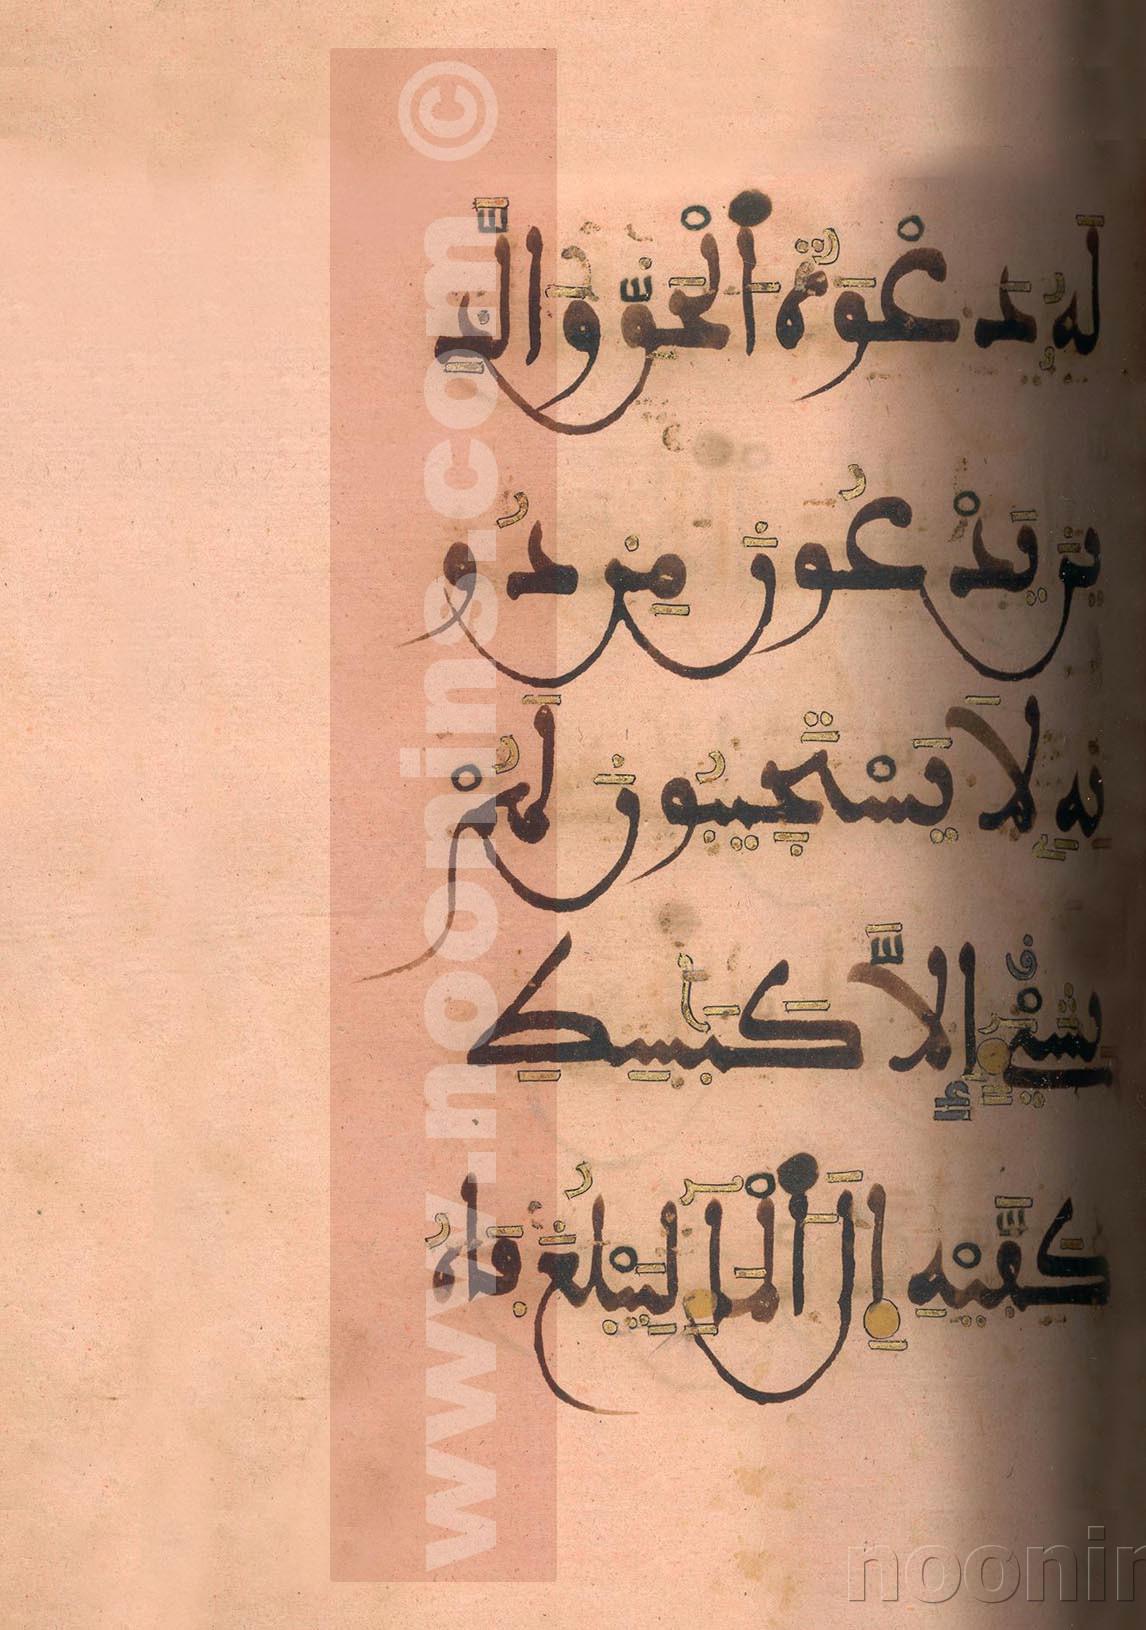 لَهُ دَعْوَةُ اُ۬لْحَقِّ وَالَّذِ
ينَ يَدْعُونَ مِن دُو
نِهِ لَا يَسْتَجِيبُونَ لَهُمْ
بِشَيْءٍ إِلَّا كَبَٰسِطِ
كَفَّيْهِ إِلَى اَ۬لْمَآءِ لِيَبْلُغَ فَاهُ
www.noonins.com ©
noonin